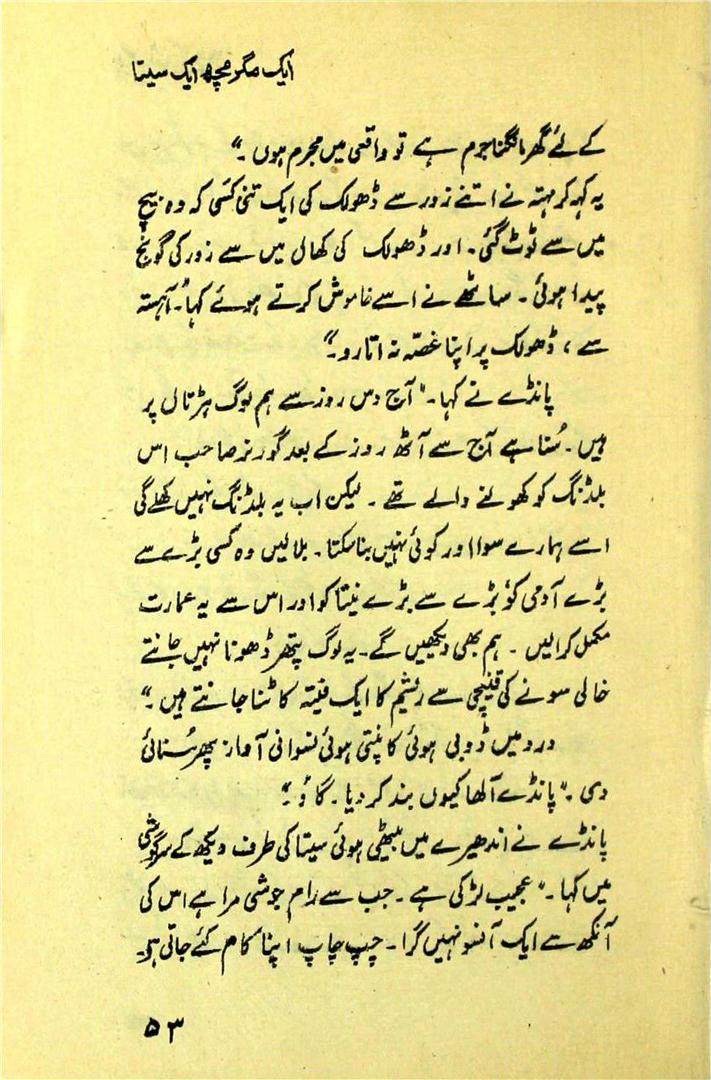 ایک مگرمچھ ایک سیتا
کے لئے گھر مانگنا جرم ہے تو واقعی میں مجرم ہوں ۔"
یہ کہہ کر مہتہ نے اتنے زور سے ڈھولک کی ایک تنی کسی کہ وہ بیچ
میں سے ٹوٹ گئی۔ اور ڈھولک کی کھال میں سے زور کی گونج
پیدا ہوئی ۔ ساٹھے نے اسے خاموش کرتے ہوئے کہا"۔ آہستہ
سے ، ڈھولک پر اپنا غصّہ نہ اتارو۔"
پانڈے نے کہا ۔" آج دس روز سے ہم لوگ ہڑتال پر
ہیں ۔ سُنا ہے آج سے آٹھ روز کے بعد گورنر صاحب اس
بلڈنگ کو کھولنے والے تھے ۔ لیکن اب یہ بلڈنگ نہیں کھلے گی
اسے ہمارے سوا اور کوئی نہیں بنا سکتا ۔ بلا لیں وہ کسی بڑے سے
بڑے آدمی کو بڑے سے بڑے نیتا کو اور اس سے یہ عمارت
مکمل کرالیں ۔ ہم بھی دیکھیں گے۔ یہ لوگ پتھر ڈھونا نہیں جانتے
خالی سونے کی قینچی سے ریشم کا ایک فیتہ کاٹنا جانتے ہیں ۔"
درد میں ڈوبی ہوئی کانپتی ہوئی نسوانی آواز پھر سُنائی
دی ۔" پانڈے آلھا کیوں بند کر دیا ۔ گاؤ ۔"
پانڈے نے اندھیرے میں بیٹھی ہوئی سیتا کی طرف دیکھ کے سرگوشی
میں کہا ۔" عجیب لڑکی ہے ۔ جب سے رام جوشی مرا ہے اس کی
آنکھ سے ایک آنسو نہیں گرا ۔ چپ چاپ اپنا کام کئے جاتی ہے۔
۵۳